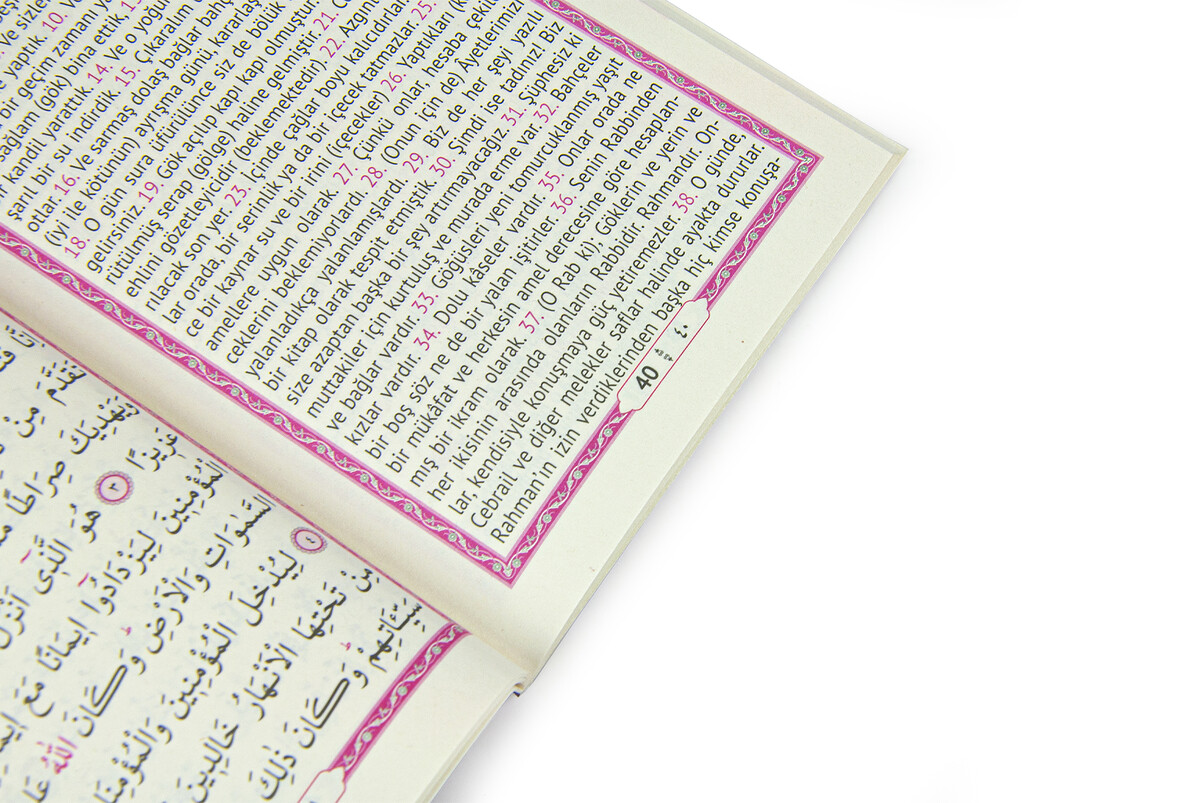 ve sizler
yaptık. 10. Ve
bir geçim zaman ya
sağlam (gök) bina ettik. 1
kandil yarattık. 14. Ve o yoğu
şarıl bir su indirdik. 15. Çıkaralım d
otlar. 16. Ve sarmaş dolaş bağlar bahç
(iyi ile kötünün) ayrışma günü, kararlaş
18. O gün sura üfürülünce siz de bölük
gelirsiniz. 19. Gök açılıp kapı kapı olmuştur.
rütülmüş serap (gölge) haline gelmiştir. 21. C
ehlini gözetleyicidir (beklemektedir) 22. Azgın
rılacak son yer. 23. İçinde çağlar boyu kalıcıdırlar
lar orada, bir serinlik ya da bir içecek tatmazlar. 25.
ce bir kaynar su ve bir irini (çecekler) 26. Yaptıkları (k
amellere uygun olarak. 27. Çünkü onlar hesaba çekil
ceklerini beklemiyorlardı. 28. (Onun için de) Âyetlerimizi
yalanladıkça yalanlamışlardı. 29. Biz de her şeyi yazılı
bir kitap olarak tespit etmiştik. 30. Şimdi ise tadınız! Biz
size azaptan başka bir şey artırmayacağız. 31. Şüphesiz ki
muttakiler için kurtuluş ve murada erme var. 32. Bahçeler
ve bağlar vardır. 33. Göğüsleri yeni tomurcuklanmış yaşıt
kızlar vardır. 34. Dolu kâseler vardır. 35. Onlar orada ne
bir boş söz ne de bir yalan işitirler. 36. Senin Rabbinden
bir mükâfat ve herkesin amel derecesine göre hesaplan-
mış bir ikram olarak. 37. (O Rab ki), Göklerin ve yerin ve
her ikisinin arasında olanların Rabbidir. Rahmandır. On-
lar, kendisiyle konuşmaya güç yetiremezler. 38. O günde,
Cebrail ve diğer melekler saflar halinde ayakta dururlar
Rahman'ın izin verdiklerinden başka hiç kimse konuşa-
40 ٤٠
تَقَدَّمَ مِنْ
وَيَهْدِيَكَ صِرَاطًا
عَزِيزًا ٣ هُوَ الَّذِى اَنْزَلَ
الْمُؤْمِنِينَ لِيَزْدَادُوا اِيمَانًا مَعَ
السَّمٰوَاتِ وَالْاَرْضِ وَكَانَ اللّٰهُ
٤ لِيُدْخِلَ الْمُؤْمِنِينَ
مِنْ تَحْتِهَا الْاَنْهَارُ خَالِدِينَ
سَيِّـَٔاتِهِمْ وَكَانَ ذٰلِكَ